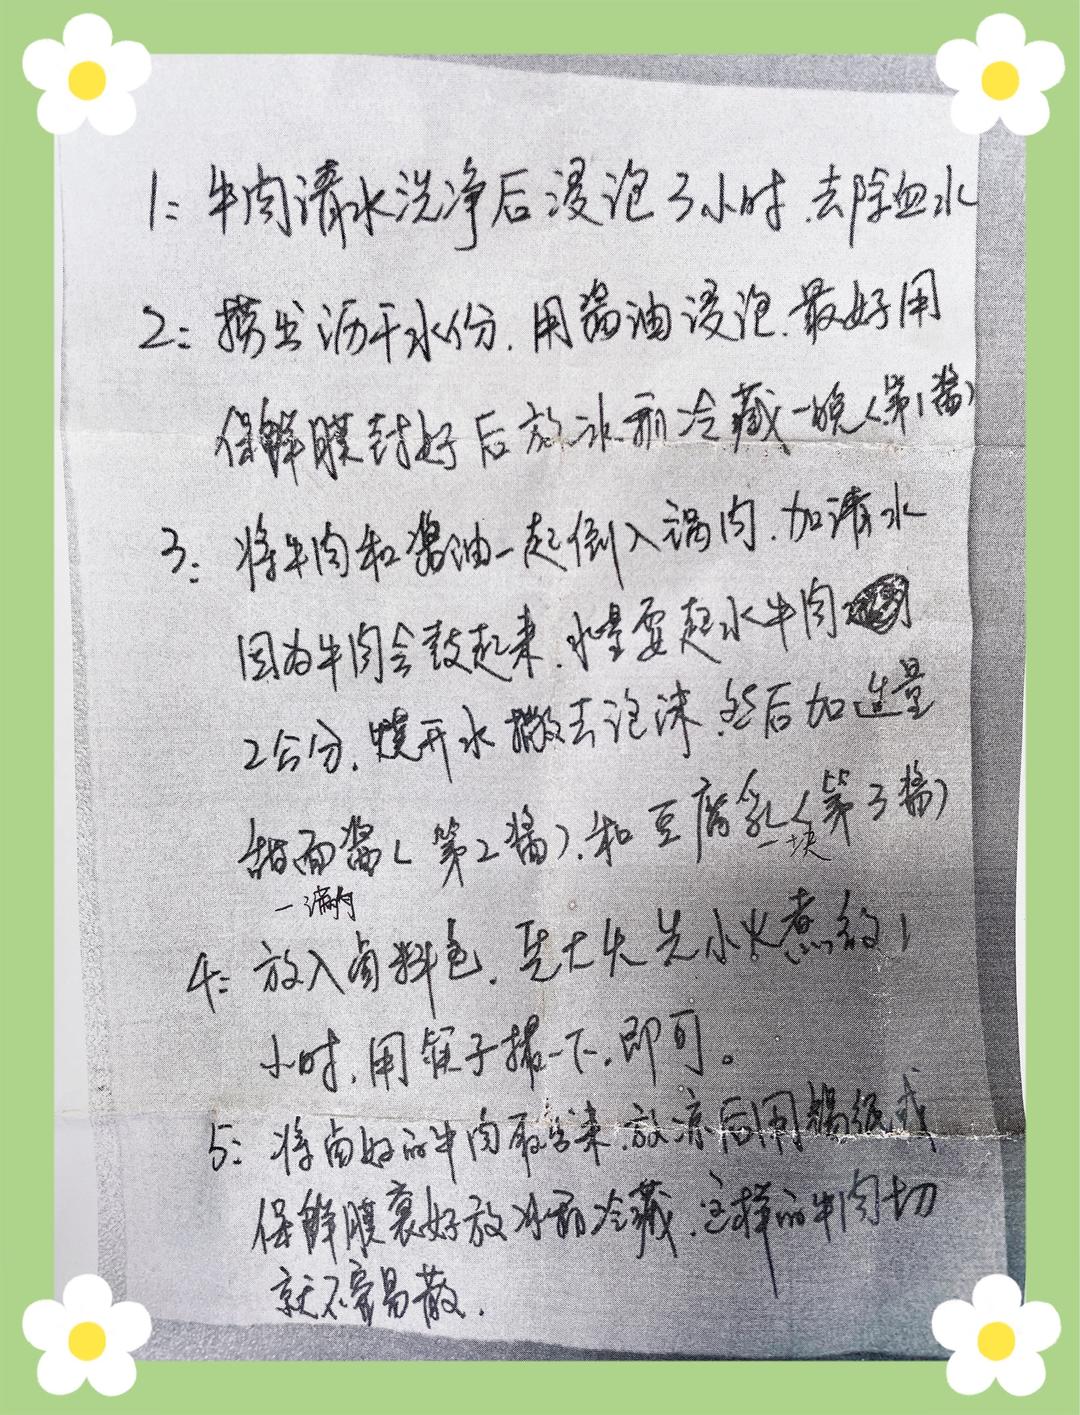 1: 牛肉清水洗净后浸泡3小时.去除血水
2: 捞出沥干水份.用酱油浸泡.最好用
保鲜膜封好后放冰箱冷藏一晚(第1酱)
3: 将牛肉和酱油一起倒入锅内.加清水
因为牛肉会鼓起来.水量要起水牛肉
2公分.烧开水撇去泡沫.然后加适量
甜面酱(第2酱).和豆腐乳(第3酱)
一块
4: 放入卤料包.先大火先小火煮约1
小时.用筷子捅一下.即可。
5: 将卤好的牛肉取出来.放凉后用锡纸或
保鲜膜裹好放冰箱冷藏.这样的牛肉切
就不容易散.